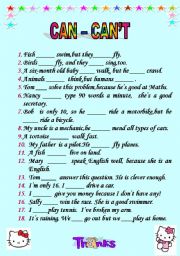 CAN - CAN'T
1. Fish _____ swim,but they_____ fly.
2. Birds_____ fly, and they _____ sing,too.
3. A six-month old baby _____ walk, but he _____ crawl.
4. Animals _____ think,but humans _____.
5. Tom _____ solve this problem,because he's good at Maths.
6. Nancy _____ type 90 words a minute, she's a good secretary.
7. Bob is only 10, so he _____ ride a motorbike,but he _____ ride a bicycle.
8. My uncle is a mechanic,he_____ mend all types of cars.
9. A tortoise _____ walk fast.
10. My father is a pilot.He _____ fly planes.
11. A fish _____ live on land.
12. Mary _____ speak English well, because she is an English.
13. Tom_____ answer this question. He is clever enough.
14. I'm only 16. I _____ drive a car.
15. I _____ give you money because I don't have any!
16. Sally_____ win the race. She is a good swimmer.
17. I _____ play tennis. I've broken my arm.
18. It's raining. We_____ go out but we _____ play at home.
Thanks